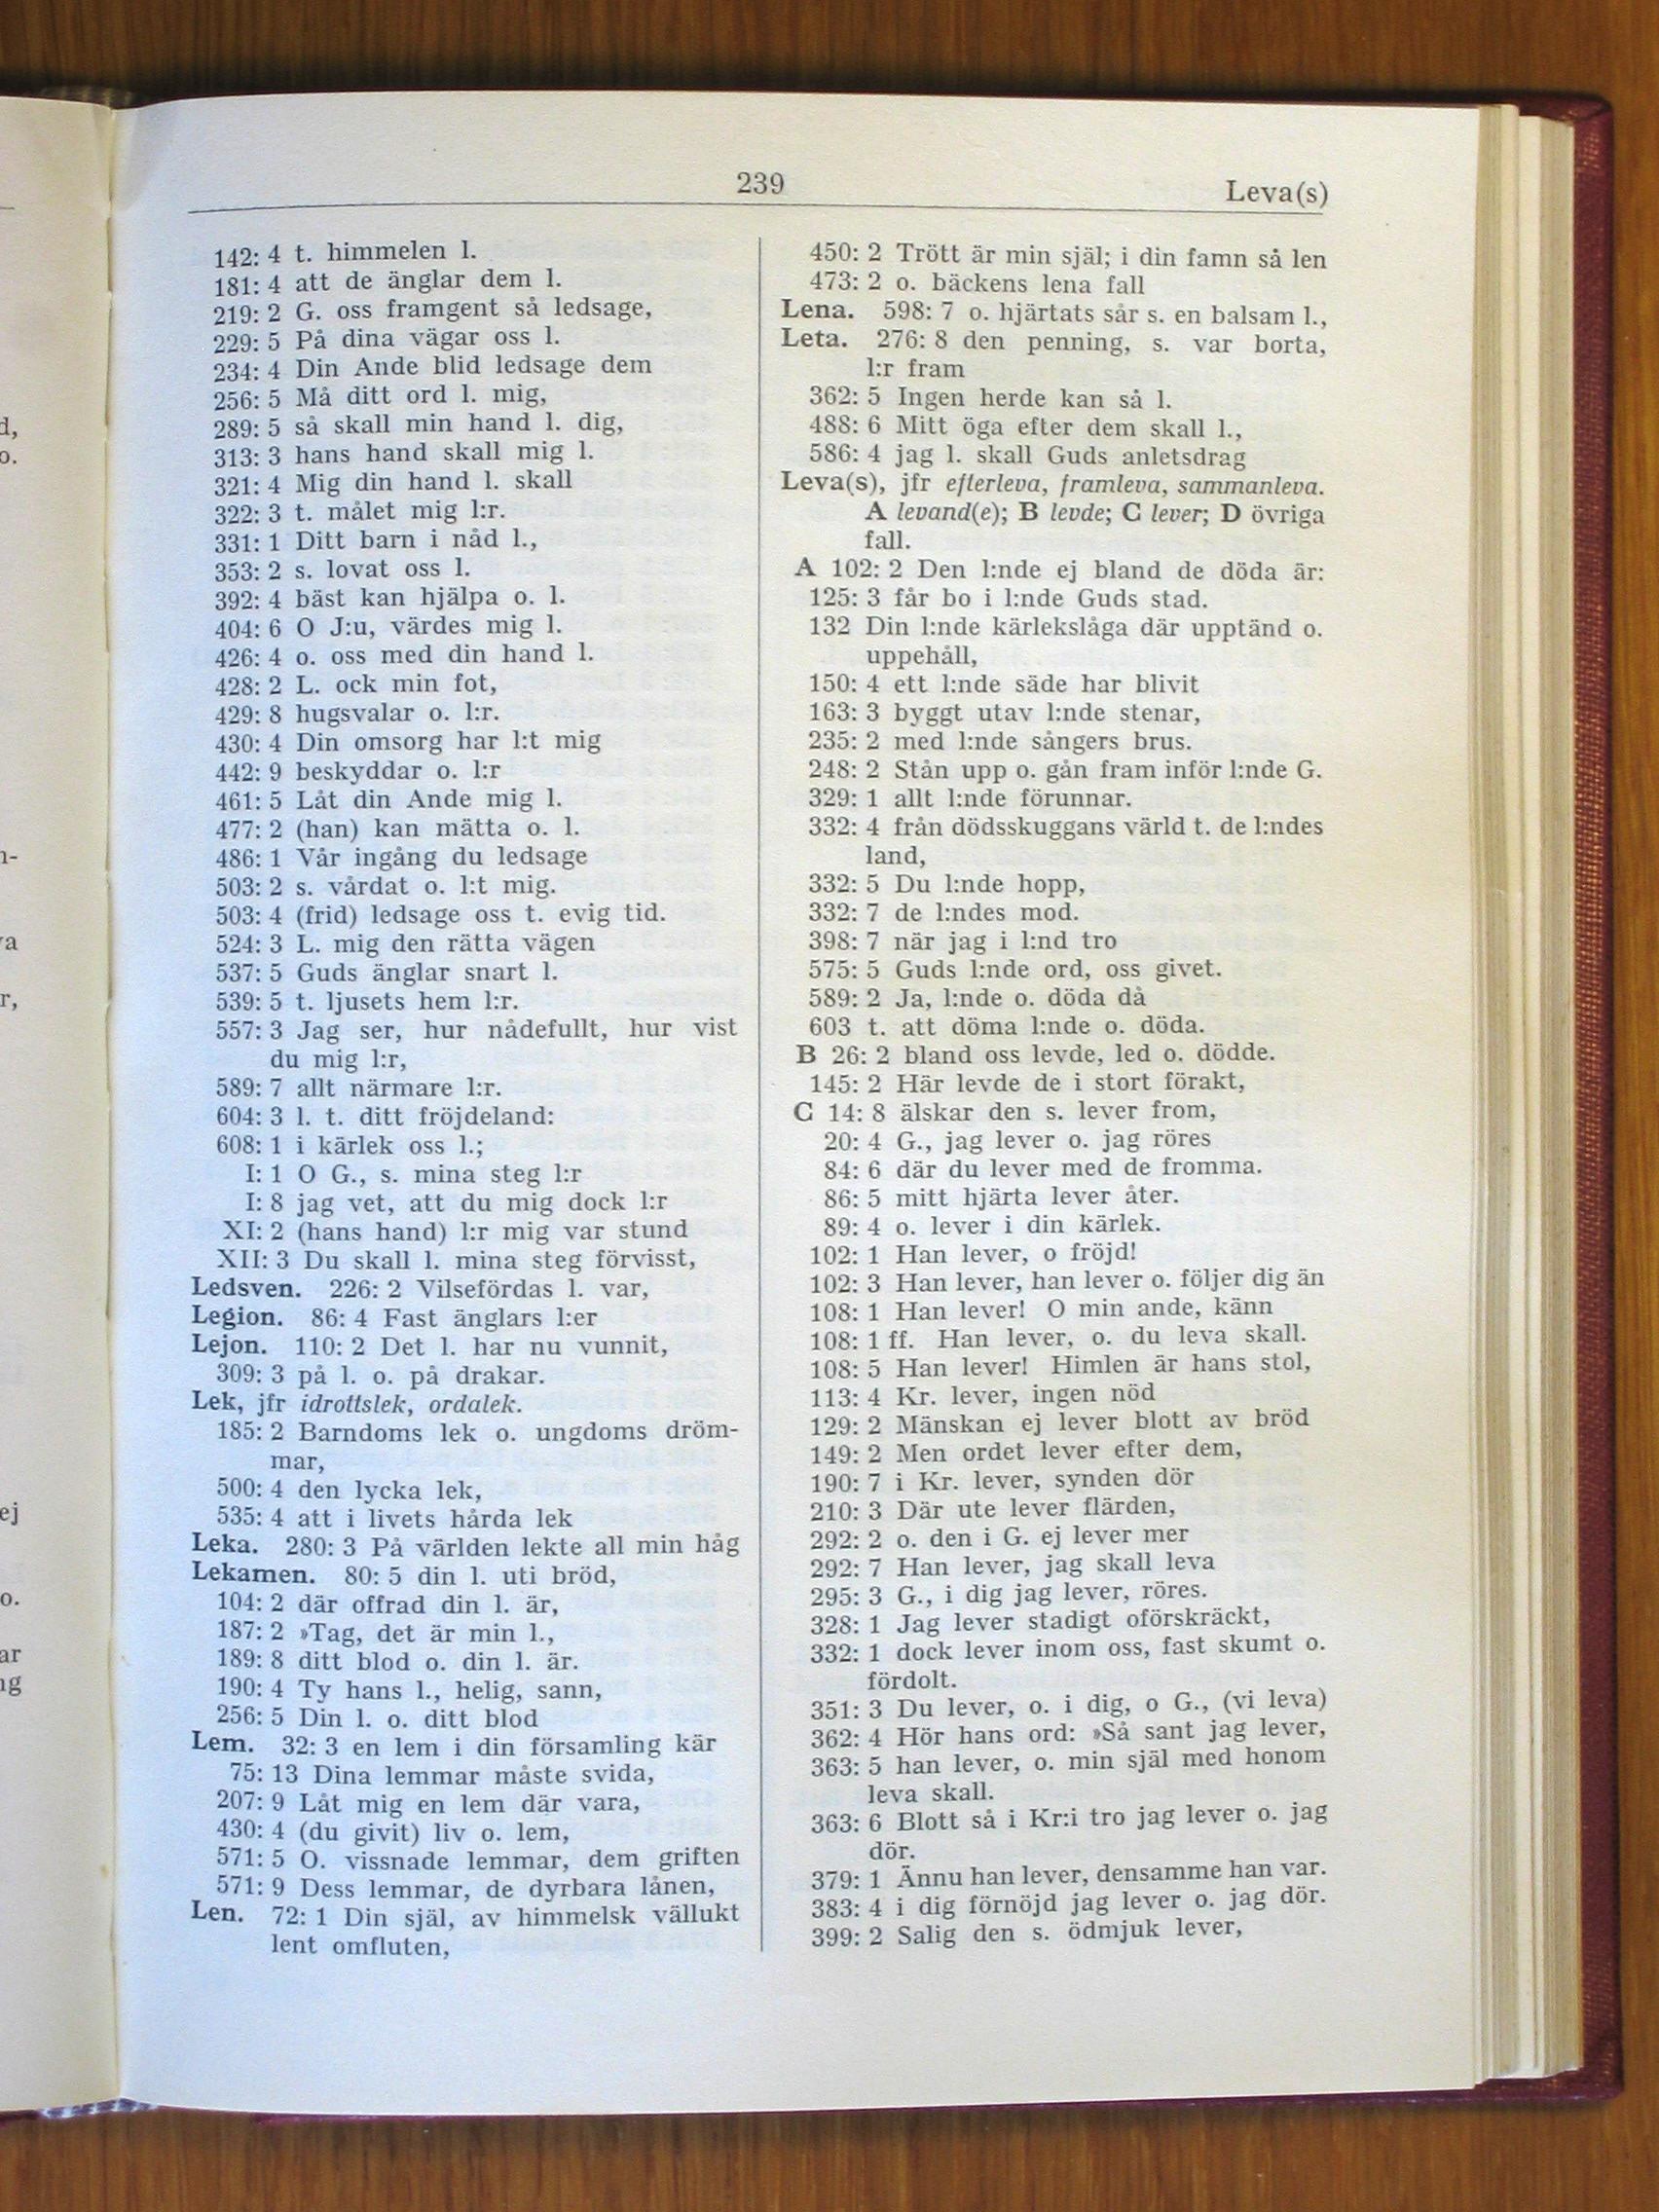 239
Leva(s)
142: 4 t. himmelen l.
181: 4 att de änglar dem l.
219: 2 G. oss framgent så ledsage,
229: 5 På dina vägar oss l.
234: 4 Din Ande blid ledsage dem
256: 5 Må ditt ord l. mig,
289: 5 så skall min hand l. dig,
313: 3 hans hand skall mig l.
321: 4 Mig din hand l. skall
322: 3 t. målet mig l:r.
331: 1 Ditt barn i nåd l.,
353: 2 s. lovat oss l.
392: 4 bäst kan hjälpa o. l.
404: 6 O J:u, värdes mig l.
426: 4 o. oss med din hand l.
428: 2 L. ock min fot,
429: 8 hugsvalar o. l:r.
430: 4 Din omsorg har l:t mig
442: 9 beskyddar o. l:r
461: 5 Låt din Ande mig l.
477: 2 (han) kan mätta o. l.
486: 1 Vår ingång du ledsage
503: 2 s. vårdat o. l:t mig.
503: 4 (frid) ledsage oss t. evig tid.
524: 3 L. mig den rätta vägen
537: 5 Guds änglar snart l.
539: 5 t. ljusets hem l:r.
557: 3 Jag ser, hur nådefullt, hur vist
du mig l:r,
589: 7 allt närmare l:r.
604: 3 l. t. ditt fröjdeland:
608: 1 i kärlek oss l.;
I: 1 O G., s. mina steg l:r
I: 8 jag vet, att du mig dock l:r
XI: 2 (hans hand) l:r mig var stund
XII: 3 Du skall l. mina steg förvisst,
Ledsven. 226: 2 Vilsefördas l. var,
Legion. 86: 4 Fast änglars l:er
Lejon. 110: 2 Det l. har nu vunnit,
309: 3 på l. o. på drakar.
Lek, jfr idrottslek, ordalek.
185: 2 Barndoms lek o. ungdoms dröm-
mar,
500: 4 den lycka lek,
535: 4 att i livets hårda lek
Leka. 280: 3 På världen lekte all min håg
Lekamen. 80: 5 din l. uti bröd,
104: 2 där offrad din l. är,
187: 2 »Tag, det är min l.,
189: 8 ditt blod o. din l. är.
190: 4 Ty hans l., helig, sann,
256: 5 Din l. o. ditt blod
Lem. 32: 3 en lem i din församling kär
75: 13 Dina lemmar måste svida,
207: 9 Låt mig en lem där vara,
430: 4 (du givit) liv o. lem,
571: 5 O. vissnade lemmar, dem griften
571: 9 Dess lemmar, de dyrbara lånen,
Len. 72: 1 Din själ, av himmelsk vällukt
lent omfluten,
450: 2 Trött är min själ; i din famn så len
473: 2 o. bäckens lena fall
Lena. 598: 7 o. hjärtats sår s. en balsam l.,
Leta. 276: 8 den penning, s. var borta,
l:r fram
362: 5 Ingen herde kan så l.
488: 6 Mitt öga efter dem skall l.,
586: 4 jag l. skall Guds anletsdrag
Leva(s), jfr efterleva, framleva, sammanleva.
A levand(e); B levde; C lever; D övriga
fall.
A 102: 2 Den l:nde ej bland de döda är:
125: 3 får bo i l:nde Guds stad.
132 Din l:nde kärlekslåga där upptänd o.
uppehåll,
150: 4 ett l:nde säde har blivit
163: 3 byggt utav l:nde stenar,
235: 2 med l:nde sångers brus.
248: 2 Stån upp o. gån fram inför l:nde G.
329: 1 allt l:nde förunnar.
332: 4 från dödsskuggans värld t. de l:ndes
land,
332: 5 Du l:nde hopp,
332: 7 de l:ndes mod.
398: 7 när jag i l:nd tro
575: 5 Guds l:nde ord, oss givet.
589: 2 Ja, l:nde o. döda då
603 t. att döma l:nde o. döda.
B 26: 2 bland oss levde, led o. dödde.
145: 2 Här levde de i stort förakt,
C 14: 8 älskar den s. lever from,
20: 4 G., jag lever o. jag röres
84: 6 där du lever med de fromma.
86: 5 mitt hjärta lever åter.
89: 4 o. lever i din kärlek.
102: 1 Han lever, o fröjd!
102: 3 Han lever, han lever o. följer dig än
108: 1 Han lever! O min ande, känn
108: 1 ff. Han lever, o. du leva skall.
108: 5 Han lever! Himlen är hans stol,
113: 4 Kr. lever, ingen nöd
129: 2 Mänskan ej lever blott av bröd
149: 2 Men ordet lever efter dem,
190: 7 i Kr. lever, synden dör
210: 3 Där ute lever flärden,
292: 2 o. den i G. ej lever mer
292: 7 Han lever, jag skall leva
295: 3 G., i dig jag lever, röres.
328: 1 Jag lever stadigt oförskräckt,
332: 1 dock lever inom oss, fast skumt o.
fördolt.
351: 3 Du lever, o. i dig, o G., (vi leva)
362: 4 Hör hans ord: »Så sant jag lever,
363: 5 han lever, o. min själ med honom
leva skall.
363: 6 Blott så i Kr:i tro jag lever o. jag
dör.
379: 1 Ännu han lever, densamme han var.
383: 4 i dig förnöjd jag lever o. jag dör.
399: 2 Salig den s. ödmjuk lever,